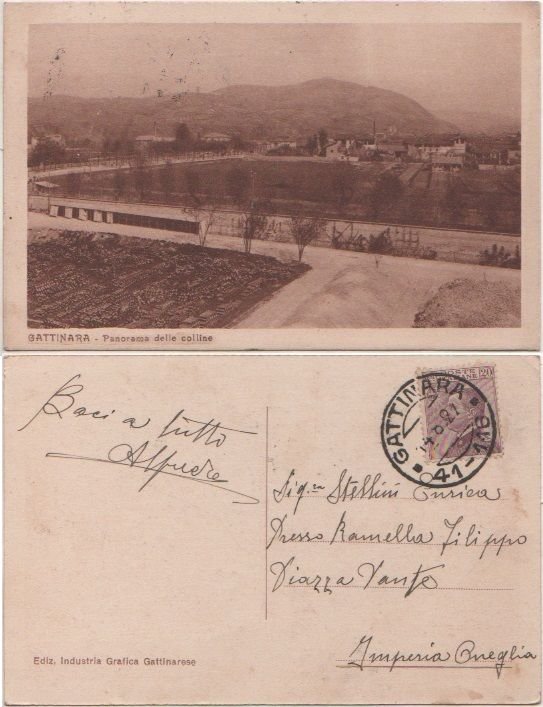 GATTINARA - Panorama delle colline
Baci a tutto
Alfredo
POSTE
GATTINARA
41-118
Sig.ra Stellini Enrica
Presso Ramella Filippo
Piazza Dante
Imperia Oneglia
Ediz. Industria Grafica Gattinarese